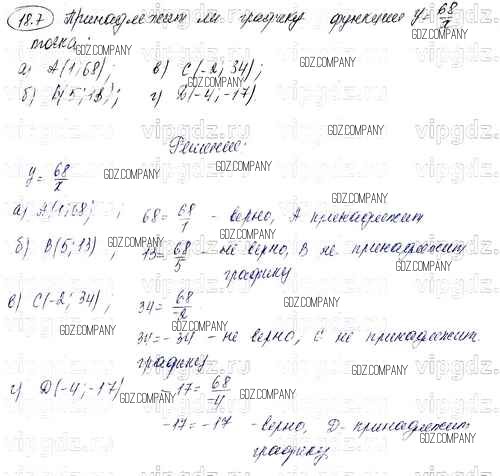 18.7 Принадлежит ли графику функции y = 68/x
точка:
а) A(1; 68); в) C(-2; 34);
б) B(5; 13); г) D(-4; -17)
Решение:
y = 68/x
а) A(1; 68); 68 = 68/1 - верно, A принадлежит
б) B(5; 13); 13 = 68/5 - не верно, B не принадлежит
графику
в) C(-2; 34); 34 = 68/-2
34 = -34 - не верно, C не принадлежит
графику
г) D(-4; -17) -17 = 68/-4
-17 = -17 - верно, D - принадлежит
графику